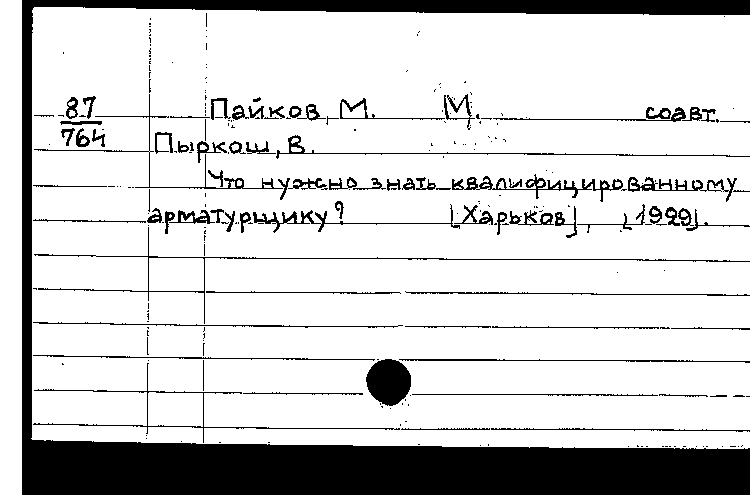 87 Пайков, М. М. соавт.
764 Пыркош, В.
Что нужно знать квалифицированному
арматурщику? [Харьков], [1929].